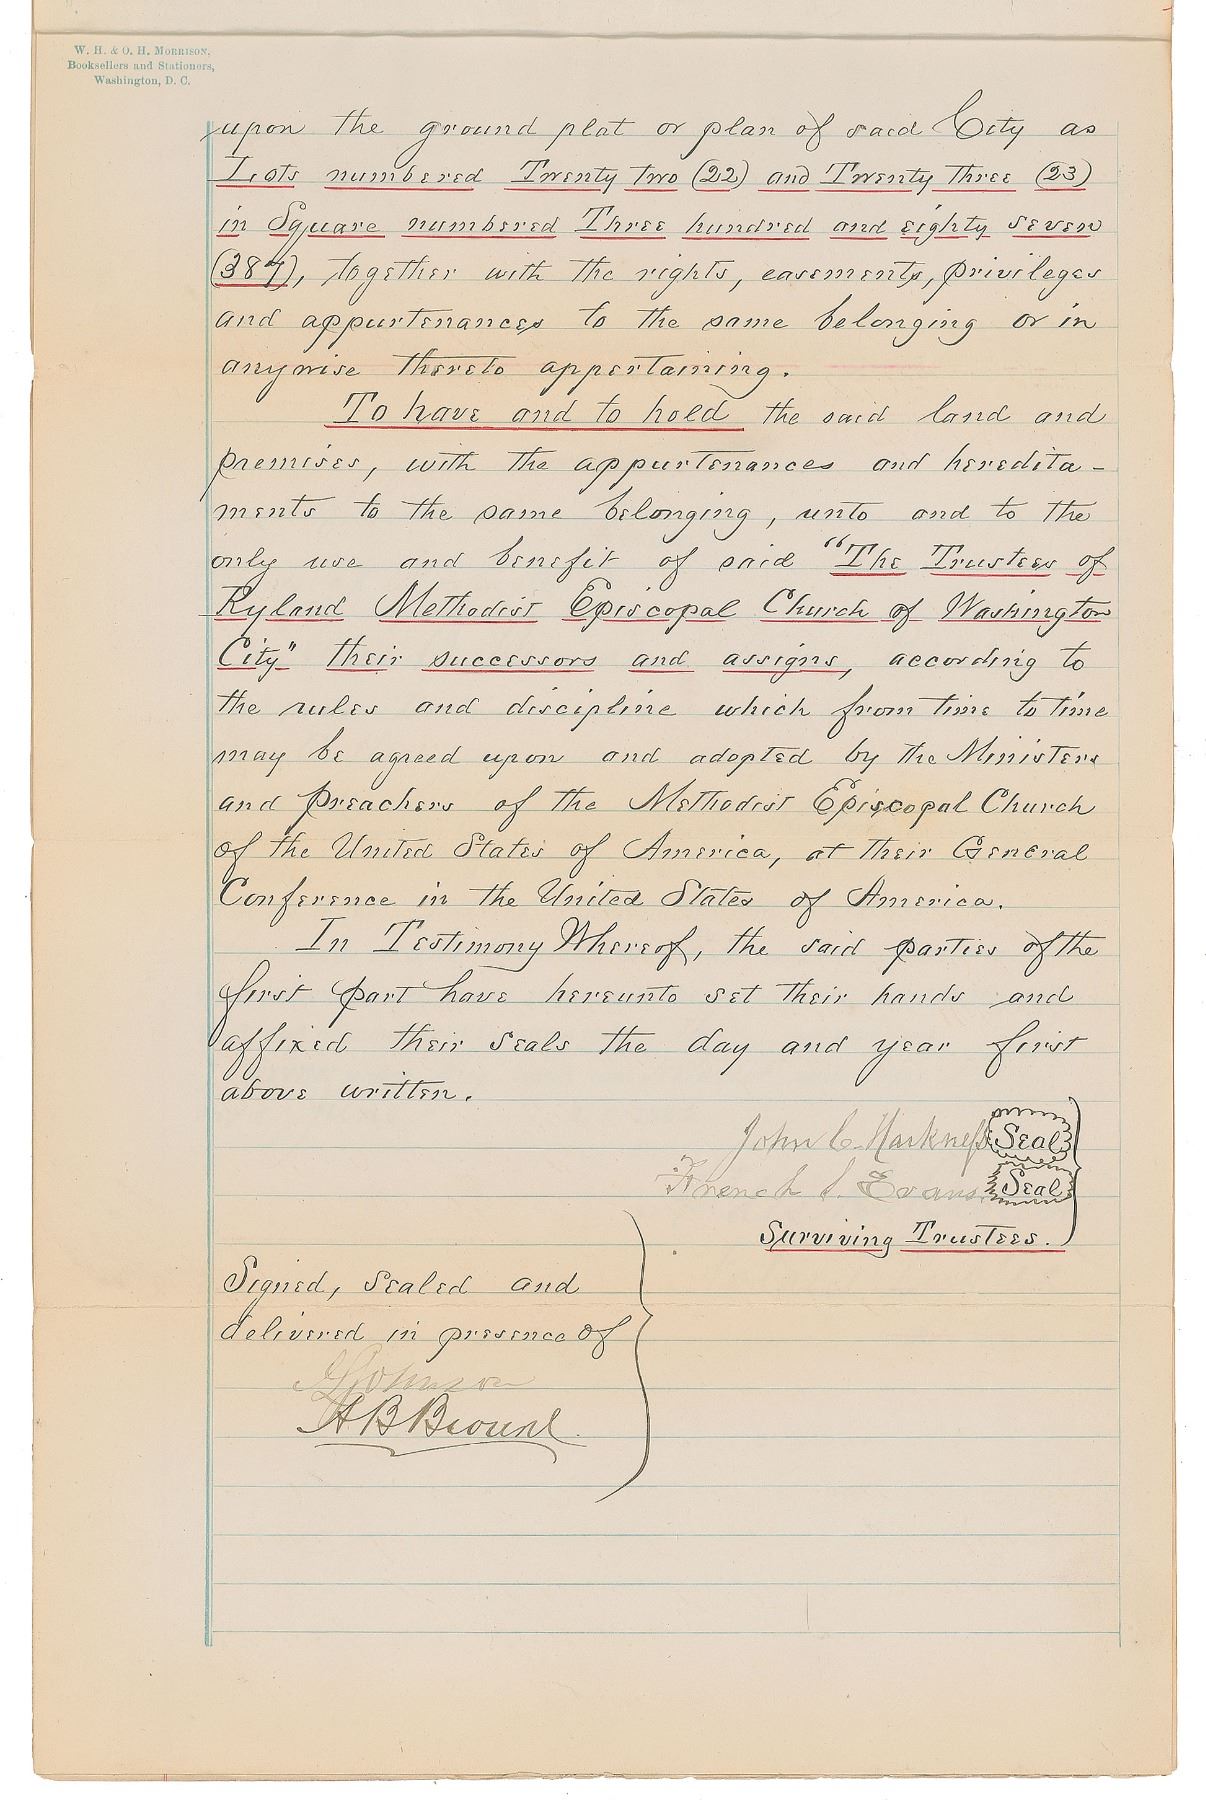 W. H. & O. H. Morrison,
Booksellers and Stationers,
Washington, D. C.
upon the ground plat or plan of said City as
Lots numbered Twenty two (22) and Twenty three (23)
in Square numbered Three hundred and eighty seven
(387), together with the rights, easements, privileges
and appurtenances to the same belonging or in
anywise thereto appertaining.
To have and to hold the said land and
premises, with the appurtenances and heredita-
ments to the same belonging, unto and to the
only use and benefit of said "The Trustees of
Ryland Methodist Episcopal Church of Washington
City" their successors and assigns, according to
the rules and discipline which from time to time
may be agreed upon and adopted by the Ministers
and preachers of the Methodist Episcopal Church
of the United States of America, at their General
Conference in the United States of America.
In Testimony Whereof, the said parties of the
first part have hereunto set their hands and
affixed their seals the day and year first
above written.
John C. Harkness Seal
French S. Evans Seal
Surviving Trustees.
Signed, sealed and
delivered in presence of
Johnson
A B Brown